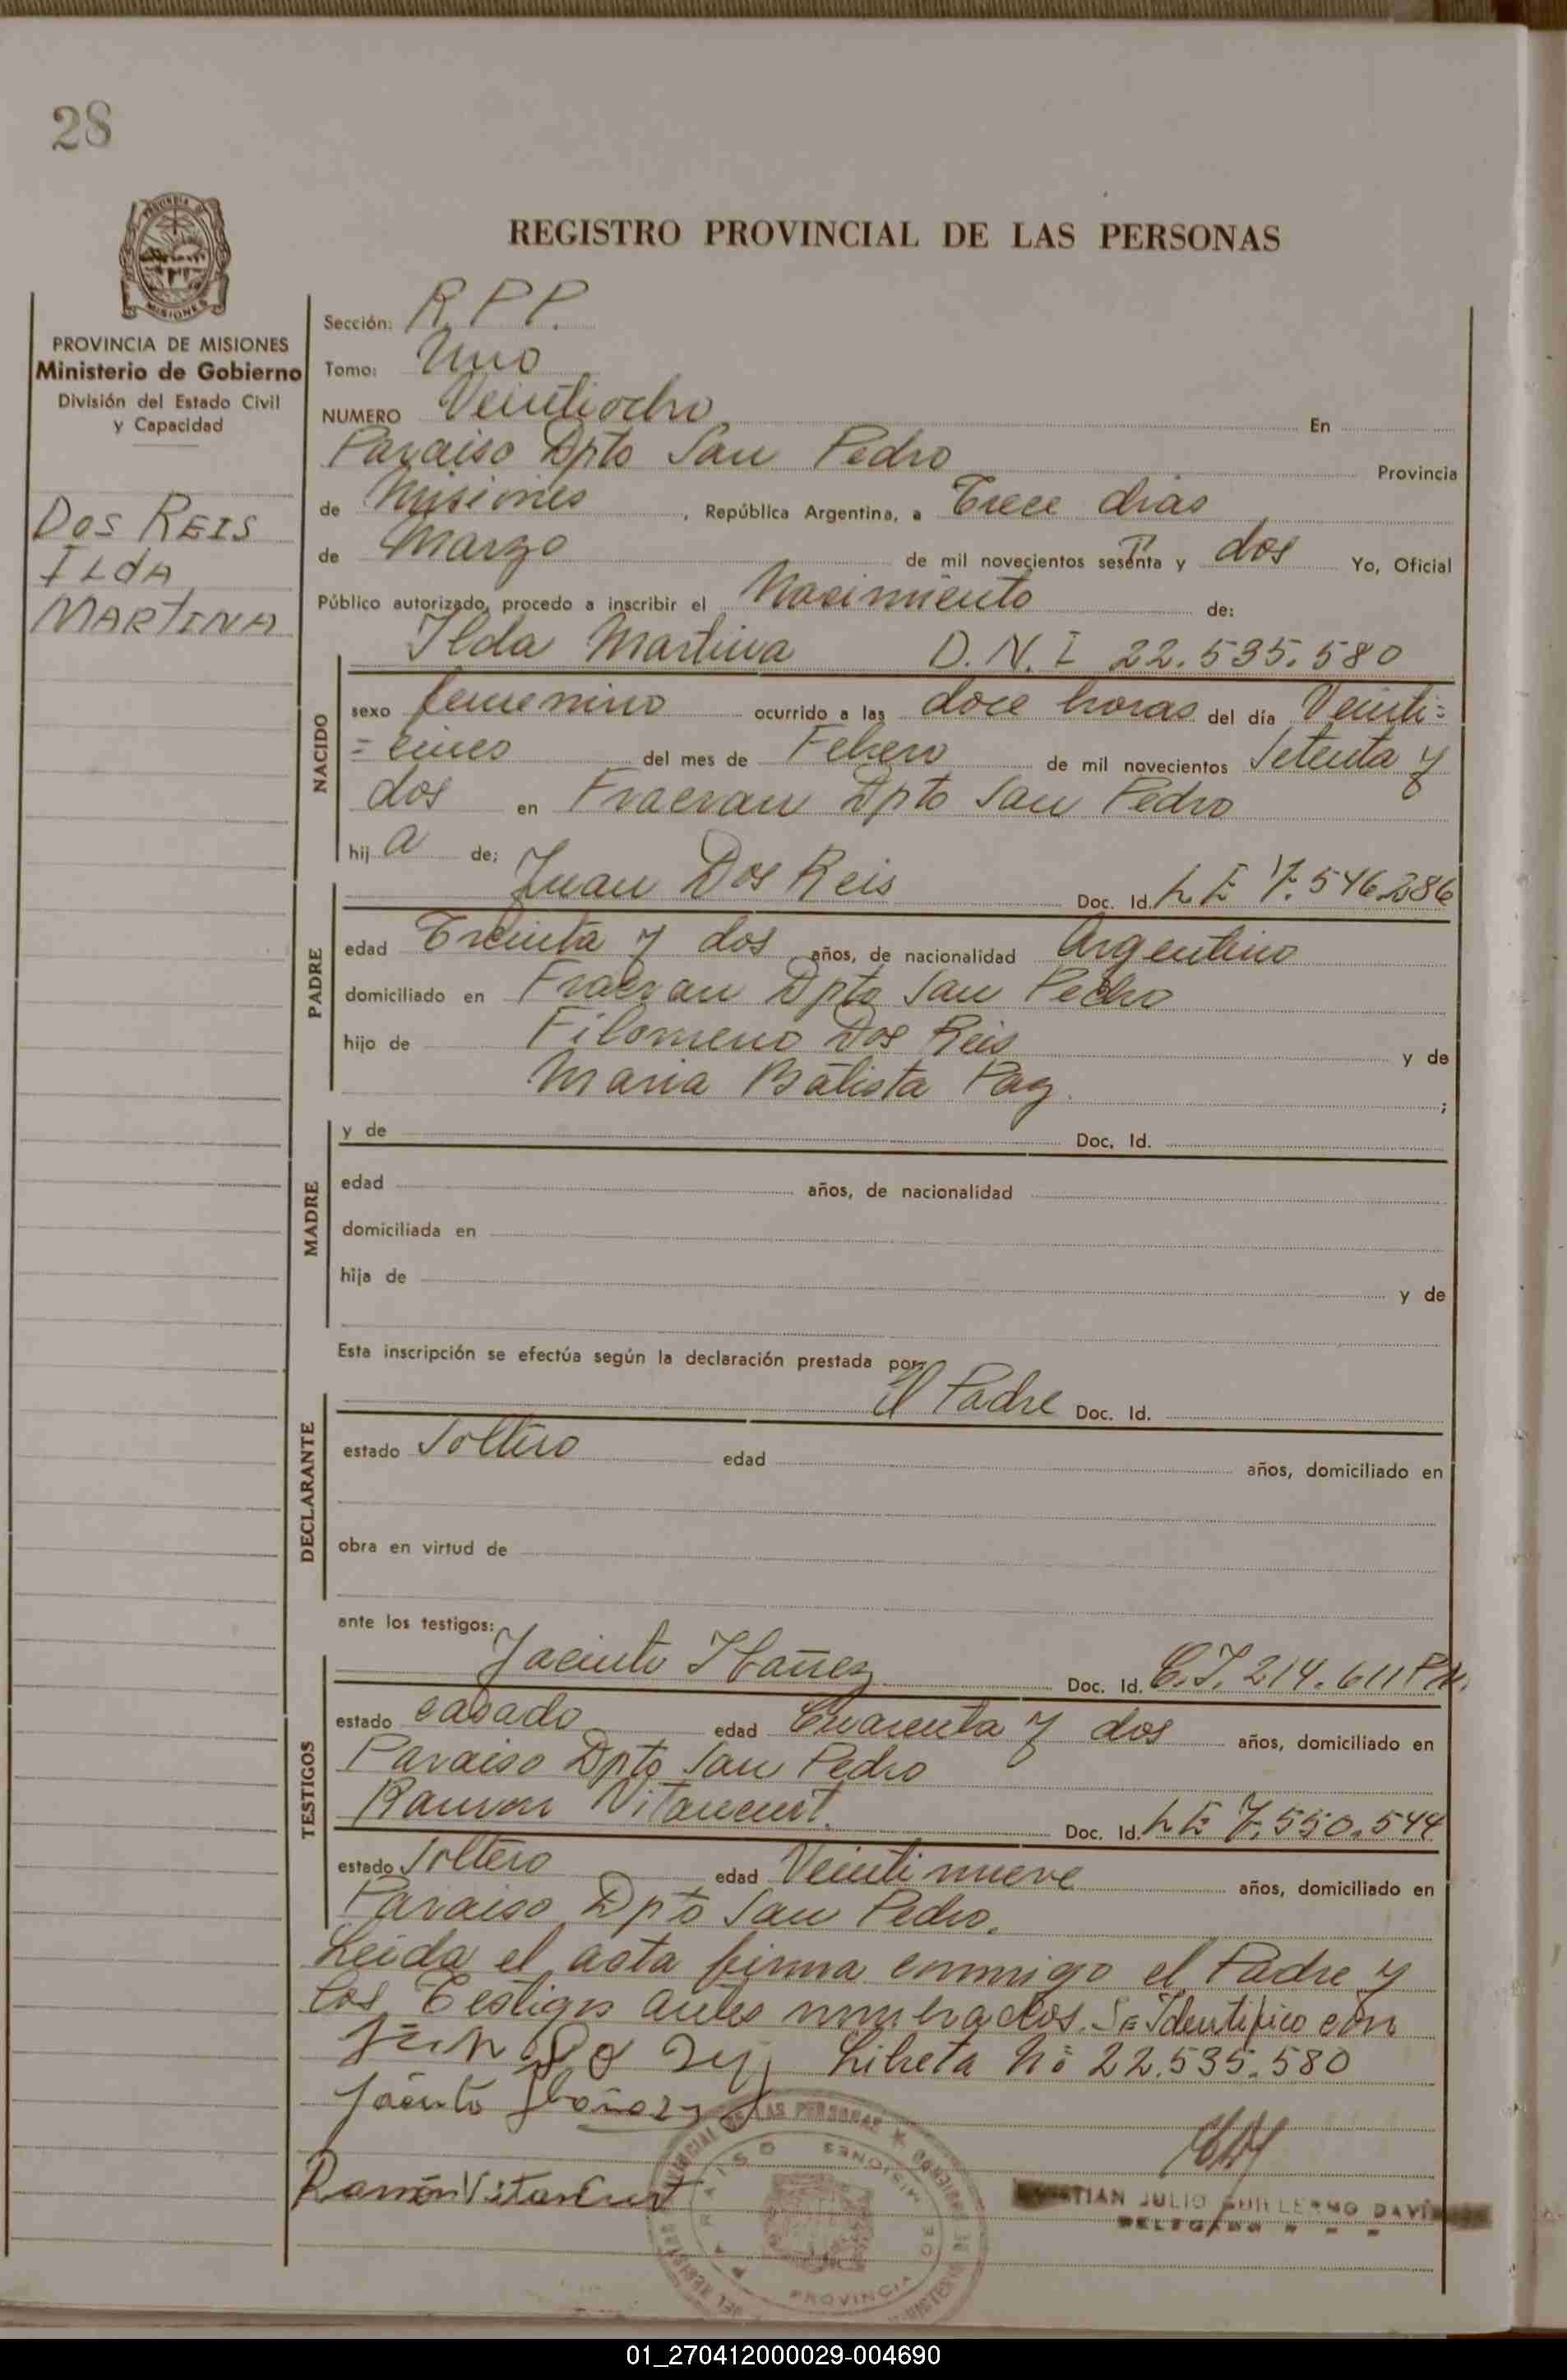 28
REGISTRO PROVINCIAL DE LAS PERSONAS
PROVINCIA DE MISIONES
Ministerio de Gobierno
División del Estado Civil
y Capacidad
DOS REIS
ILdA
MARTINA
Sección: R.P.P.
Tomo: Uno
NUMERO Veintiocho En
Paraiso Dpto San Pedro Provincia
de Misiones, República Argentina, a Trece dias
de Marzo de mil novecientos sesenta y dos Yo, Oficial
Público autorizado, procedo a inscribir el Nacimiento de:
Ilda Martina D.N.I 22.535.580
NACIDO
sexo femenino ocurrido a las doce horas del día Veinti=
=cinco del mes de Febrero de mil novecientos Setenta y
dos en Fracran Dpto San Pedro
hij a de; Juan Dos Reis Doc. Id. L E 7.546.286
PADRE
edad Treinta y dos años, de nacionalidad Argentino
domiciliado en Fracran Dpto San Pedro
hijo de Filomeno Dos Reis y de
Maria Batista Paz. ;
MADRE
y de Doc. Id.
edad años, de nacionalidad
domiciliada en
hija de y de
Esta inscripción se efectúa según la declaración prestada por
DECLARANTE
el Padre Doc. Id.
estado Soltero edad años, domiciliado en
obra en virtud de
ante los testigos:
TESTIGOS
Jacinto Ibañez Doc. Id. C.I. 214.611 P.M.
estado casado edad Cuarenta y dos años, domiciliado en
Paraiso Dpto San Pedro
Ramon Vitancurt. Doc. Id. L E 7.550.544
estado Soltero edad Veinti nueve años, domiciliado en
Paraiso Dpto San Pedro.
Leida el acta firma conmigo el Padre y
los Testigos antes Se Identifico con
Libreta Nº 22.535.580
Jacinto Ibañez
Ramón Vitancurt
JULIO GUILLERMO
DELEGADO
PROVINCIA DE MISIONES
01_270412000029-004690